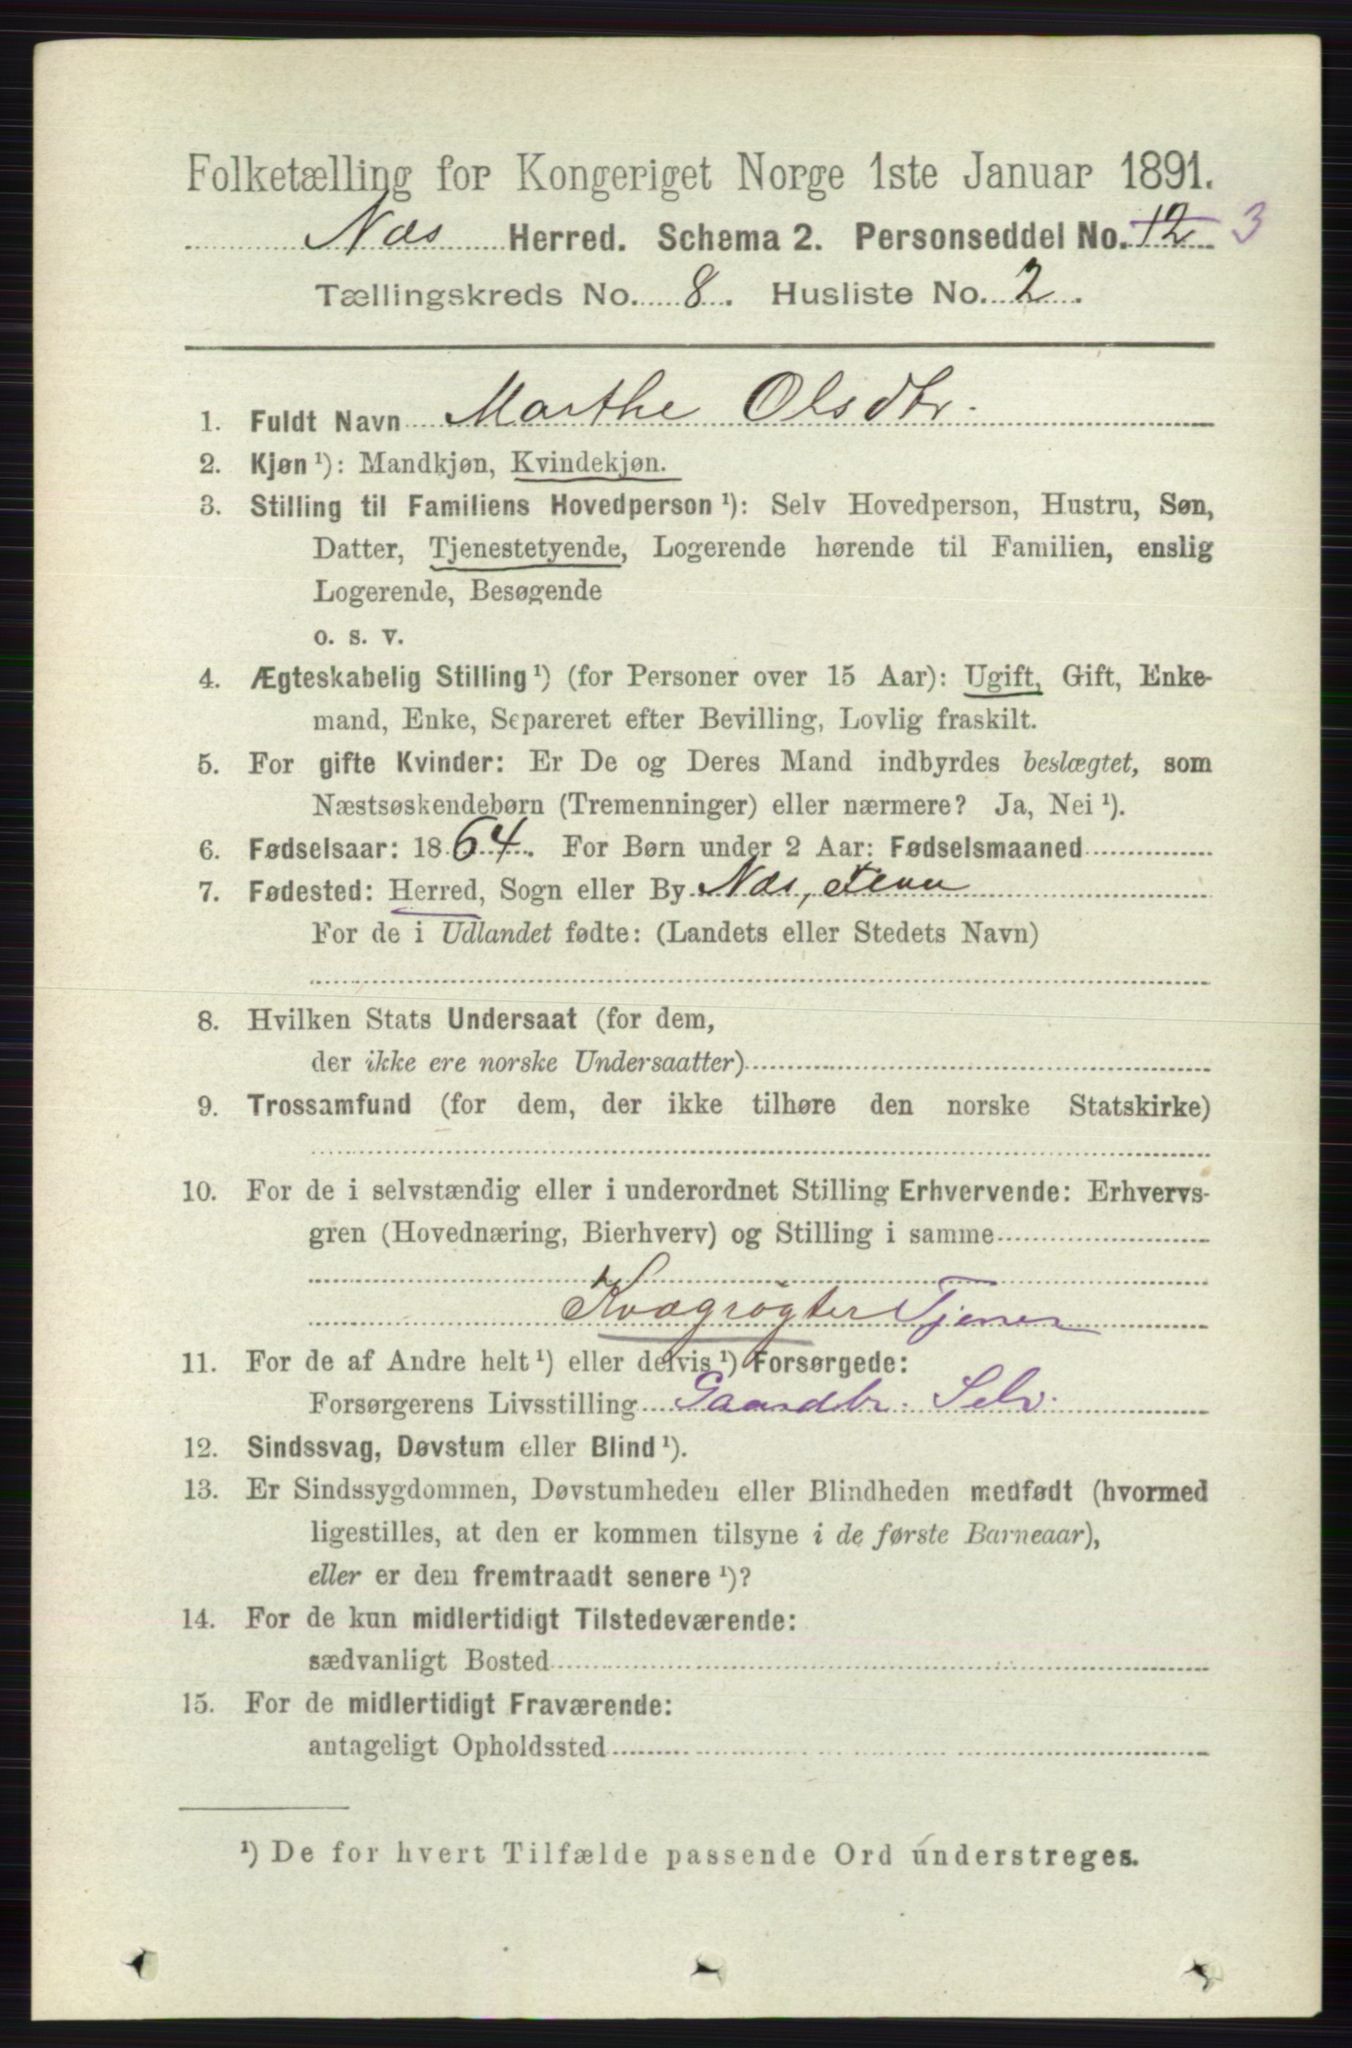 Folketælling for Kongeriget Norge 1ste Januar 1891.
Næs Herred. Schema 2. Personseddel No. 12 3
Tællingskreds No. 8. Husliste No. 2.
1. Fuldt Navn Marthe Olsdtr.
2. Kjøn ¹): Mandkjøn, Kvindekjøn.
3. Stilling til Familiens Hovedperson ¹): Selv Hovedperson, Hustru, Søn,
Datter, Tjenestetyende, Logerende hørende til Familien, enslig
Logerende, Besøgende
o. s. v.
4. Ægteskabelig Stilling ¹) (for Personer over 15 Aar): Ugift, Gift, Enke-
mand, Enke, Separeret efter Bevilling, Lovlig fraskilt.
5. For gifte Kvinder: Er De og Deres Mand indbyrdes beslægtet, som
Næstsøskendebørn (Tremenninger) eller nærmere? Ja, Nei ¹).
6. Fødselsaar: 1864. For Børn under 2 Aar: Fødselsmaaned
7. Fødested: Herred, Sogn eller By Næs,
For de i Udlandet fødte: (Landets eller Stedets Navn)
8. Hvilken Stats Undersaat (for dem,
der ikke ere norske Undersaatter)
9. Trossamfund (for dem, der ikke tilhøre den norske Statskirke)
10. For de i selvstændig eller i underordnet Stilling Erhvervende: Erhvervs-
gren (Hovednæring, Bierhverv) og Stilling i samme
Kvægrøgter Tjener
11. For de af Andre helt ¹) eller delvis ¹) Forsørgede:
Forsørgerens Livsstilling Gaardbr. Selv.
12. Sindssvag, Døvstum eller Blind ¹).
13. Er Sindssygdommen, Døvstumheden eller Blindheden medfødt (hvormed
ligestilles, at den er kommen tilsyne i de første Barneaar),
eller er den fremtraadt senere ¹)?
14. For de kun midlertidigt Tilstedeværende:
sædvanligt Bosted
15. For de midlertidigt Fraværende:
antageligt Opholdssted
¹) De for hvert Tilfælde passende Ord understreges.